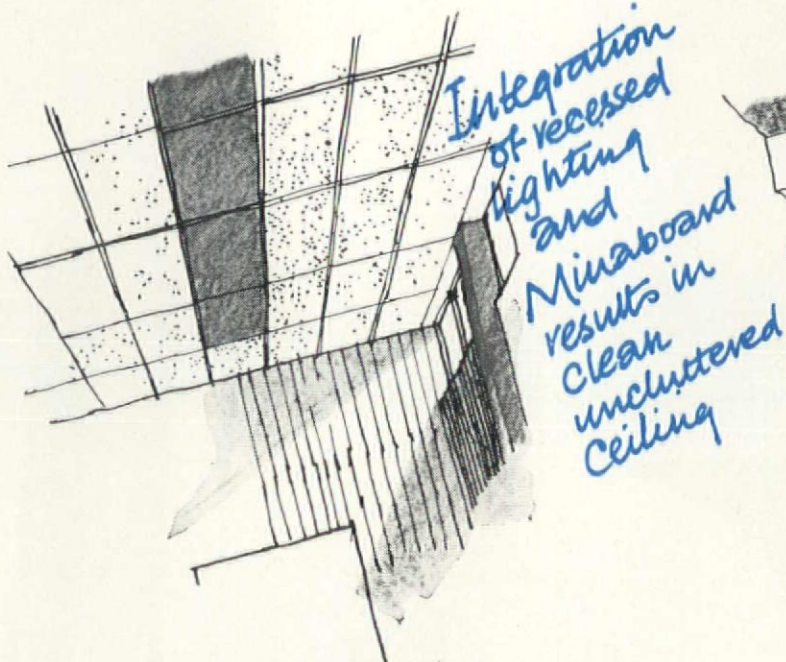 Integration
of recessed
lighting
and
Minaboard
results in
clean
uncluttered
ceiling